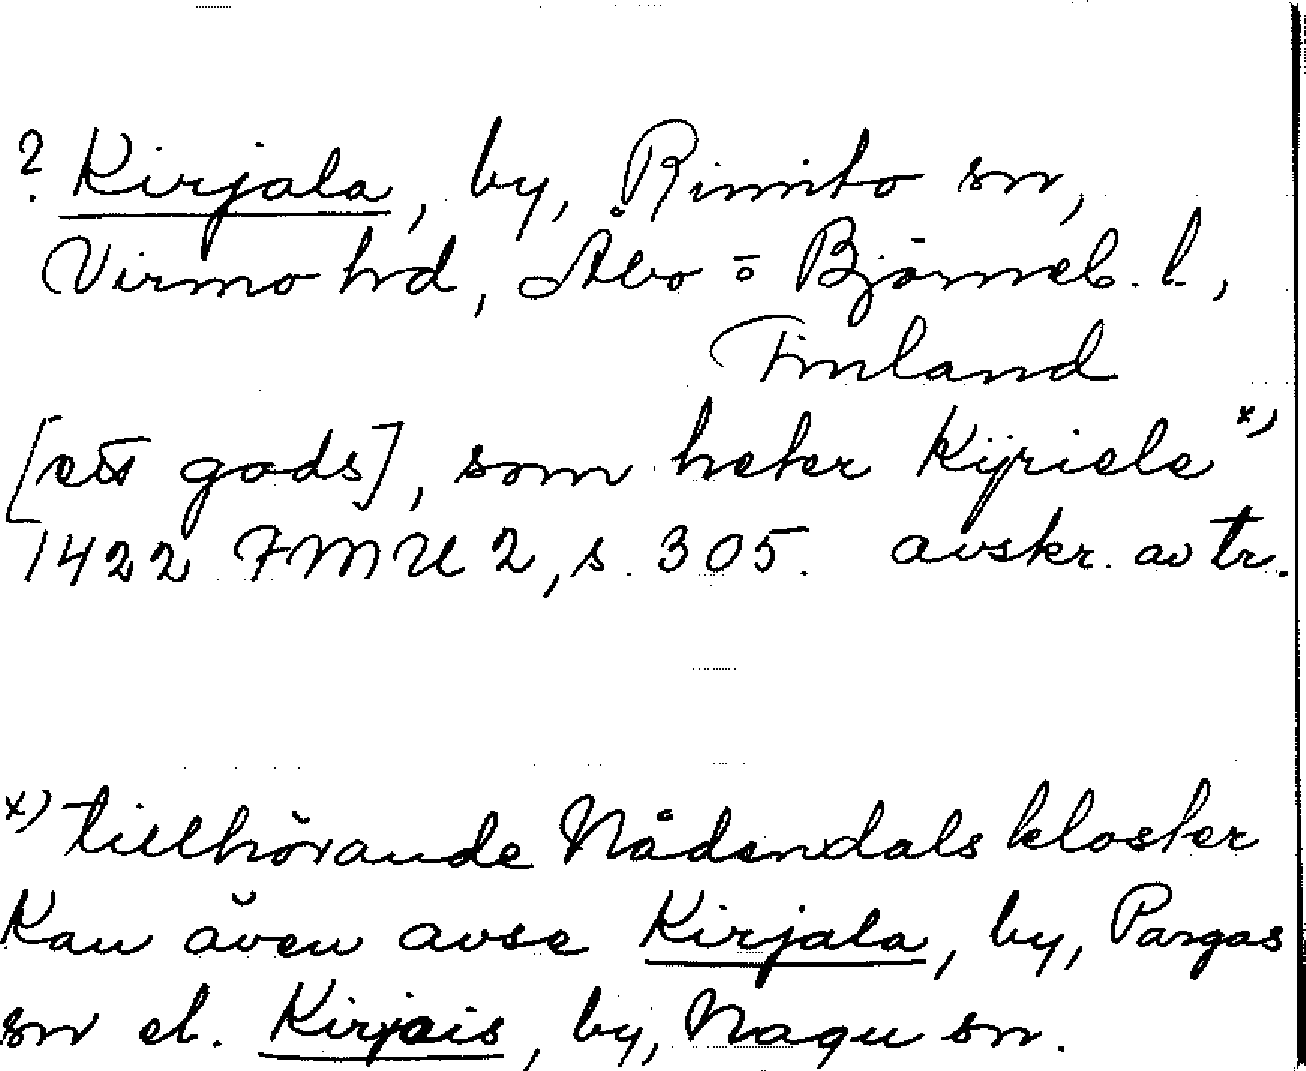 ? Kirjala, by, Rimito sn,
Virmo hd, Åbo = Björneb. l.,
Finland
[ett gods], som heter Kijriele x)
1422 FMU 2, s. 305. avskr. av tr.
x) tillhörande Nådendals kloster
Kan även avse Kirjala, by, Pargas
sn el. Kirjais, by, Nagu sn.